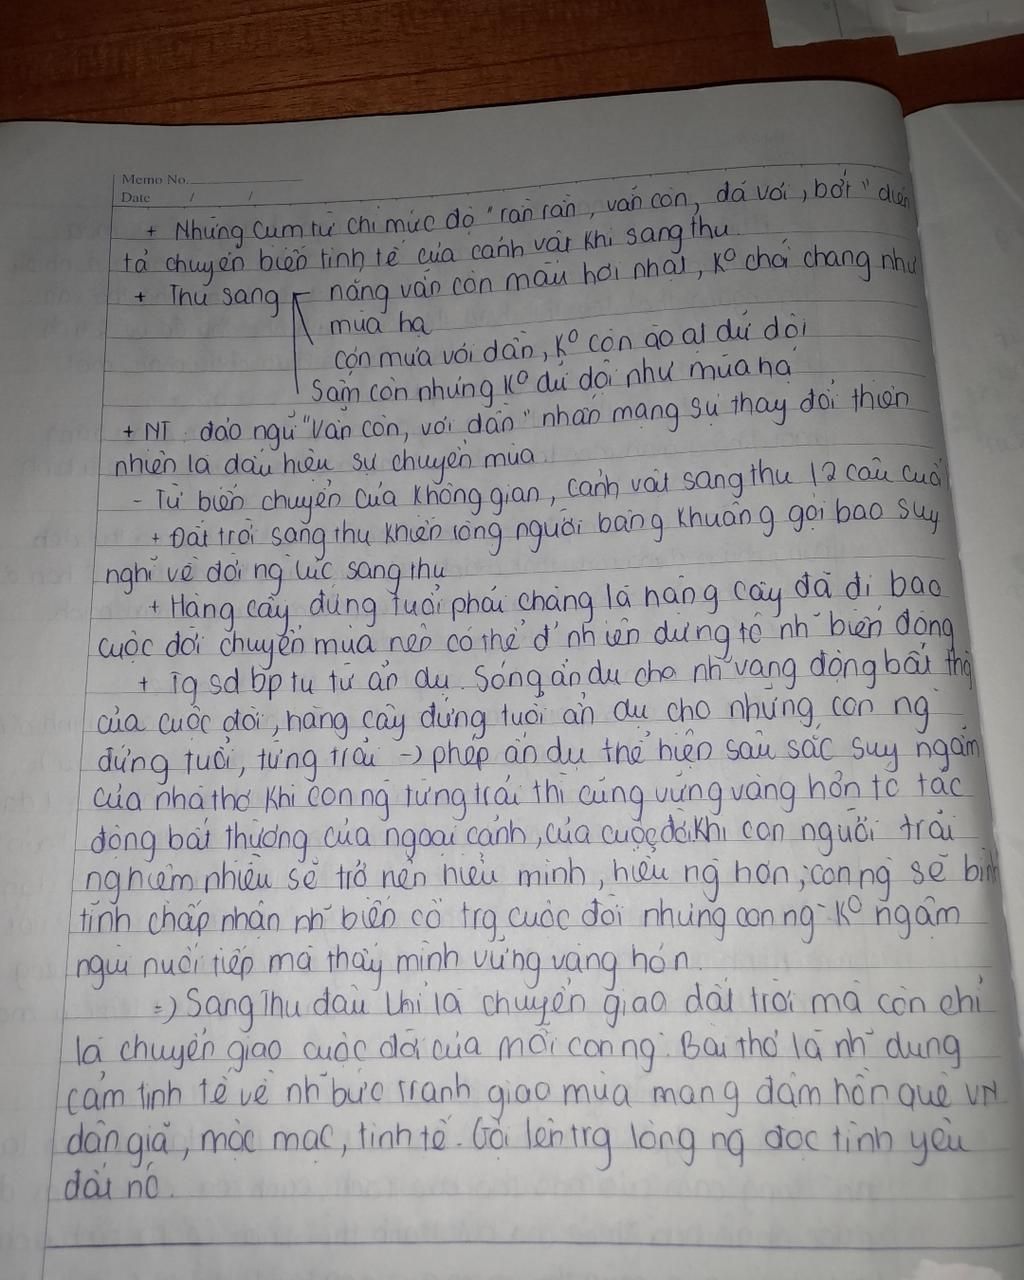 Memo No.
Date / /
+ Những cụm từ chỉ mức độ "ran rần, vẫn còn, đã vơi, bớt" diễn
tả chuyển biến tinh tế của cảnh vật khi sang thu.
+ Thu sang nắng vẫn còn màu hơi nhạt, K° chói chang như
mùa hạ
cơn mưa vơi dần, K° còn ào ạt dữ dội
Sấm còn nhưng K° dữ dội như mùa hạ
+ NT: đảo ngữ "Vẫn còn, vơi dần" nhấn mạng sự thay đổi thiên
nhiên là dấu hiệu sự chuyển mùa
- Từ biến chuyển của không gian, cảnh vật sang thu 12 câu cuối
+ Đất trời sang thu khiến lòng người bâng khuâng gợi bao suy
nghĩ về đời ng lúc sang thu
+ Hàng cây đứng tuổi phải chăng là hàng cây đã đi bao
cuộc đời chuyển mùa nên có thể đ' nhiên đứng tc nh~ biến động
+ Tg sd bp tu từ ẩn dụ. Sóng ẩn dụ cho nh~ vang động bất thg
của cuộc đời, hàng cây đứng tuổi ẩn dụ cho những con ng
đứng tuổi, từng trải -> phép ẩn dụ thể hiện sâu sắc suy ngẫm
của nhà thơ khi con ng từng trải thì cũng vững vàng hơn tc tác
động bất thường của ngoại cảnh, của cuộc đời. Khi con người trải
nghiệm nhiều sẽ trở nên hiểu mình, hiểu ng hơn, con ng sẽ bình
tĩnh chấp nhận nh~ biến cố trg cuộc đời nhưng con ng K° ngậm
ngùi nuối tiếp mà thấy mình vững vàng hơn.
=> Sang Thu đâu chỉ là chuyển giao đất trời mà còn chỉ
là chuyển giao cuộc đời của mỗi con ng. Bài thơ là nh~ dung
cảm tinh tế về nh~ bức tranh giao mùa mang đậm hồn quê VN
dân giã, mộc mạc, tinh tế. Gợi lên trg lòng ng đọc tình yêu
đất nc.